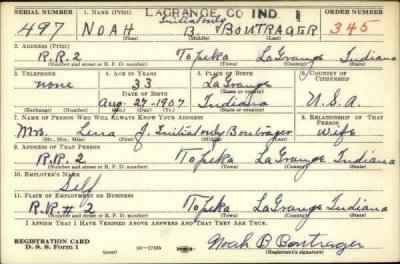 SERIAL NUMBER 1. NAME (Print) LAGRANGE, CO IND. 1 ORDER NUMBER
Initial only
497 NOAH B. BONTRAGER 345
(First) (Middle) (Last)
2. ADDRESS (Print)
R.R.2 Topeka LaGrange Indiana
(Number and street or R. F. D. number) (Town) (County) (State)
3. TELEPHONE 4. AGE IN YEARS 5. PLACE OF BIRTH 6. COUNTRY OF CITIZENSHIP
none 33 LaGrange
DATE OF BIRTH (Town or county)
Aug. 27-1907 Indiana U.S.A.
(Exchange) (Number) (Mo.) (Day) (Yr.) (State or country)
7. NAME OF PERSON WHO WILL ALWAYS KNOW YOUR ADDRESS 8. RELATIONSHIP OF THAT PERSON
Mrs. Lena J. Initial only Bontrager Wife
(Mr., Mrs., Miss) (First) (Middle) (Last)
9. ADDRESS OF THAT PERSON
R.R.2 Topeka LaGrange Indiana
(Number and street or R. F. D. number) (Town) (County) (State)
10. EMPLOYER'S NAME
Self
11. PLACE OF EMPLOYMENT OR BUSINESS
R.R.# 2 Topeka LaGrange Indiana
(Number and street or R. F. D. number) (Town) (County) (State)
I AFFIRM THAT I HAVE VERIFIED ABOVE ANSWERS AND THAT THEY ARE TRUE.
REGISTRATION CARD
D. S. S. Form 1 (over) 16-17105 Noah B Bontrager
(Registrant's signature)